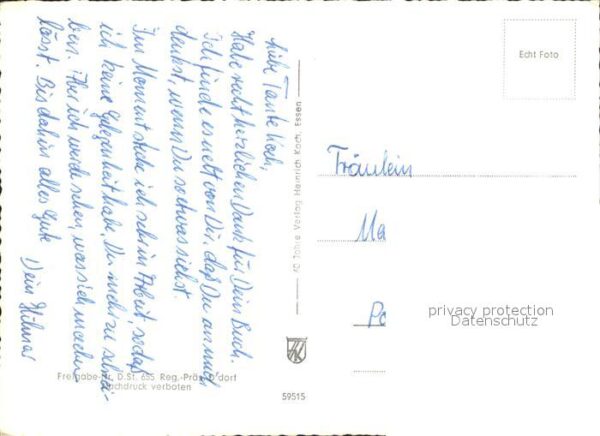 Liebe Tante Liech,
Habe recht herzlichen Dank für Dein Buch.
Ich finde es nett von Dir, daß Du an mich
denkst, wenn Du so etwas siehst.
Im Moment stecke ich sehr in Arbeit, so daß
ich keine Gelegenheit habe, Dir mehr zu schrei-
ben. Aber ich werde sehen, was sich machen
lässt. Bis dahin alles Gute
Dein Hilmar
40 Jahre Verlag Heinrich Koch, Essen
Echt Foto
Fräulein
Ma
Po
privacy protection
Datenschutz
Freigabe-Nr. D.St. 685 Reg.-Präs. D'dorf
Nachdruck verboten
59515